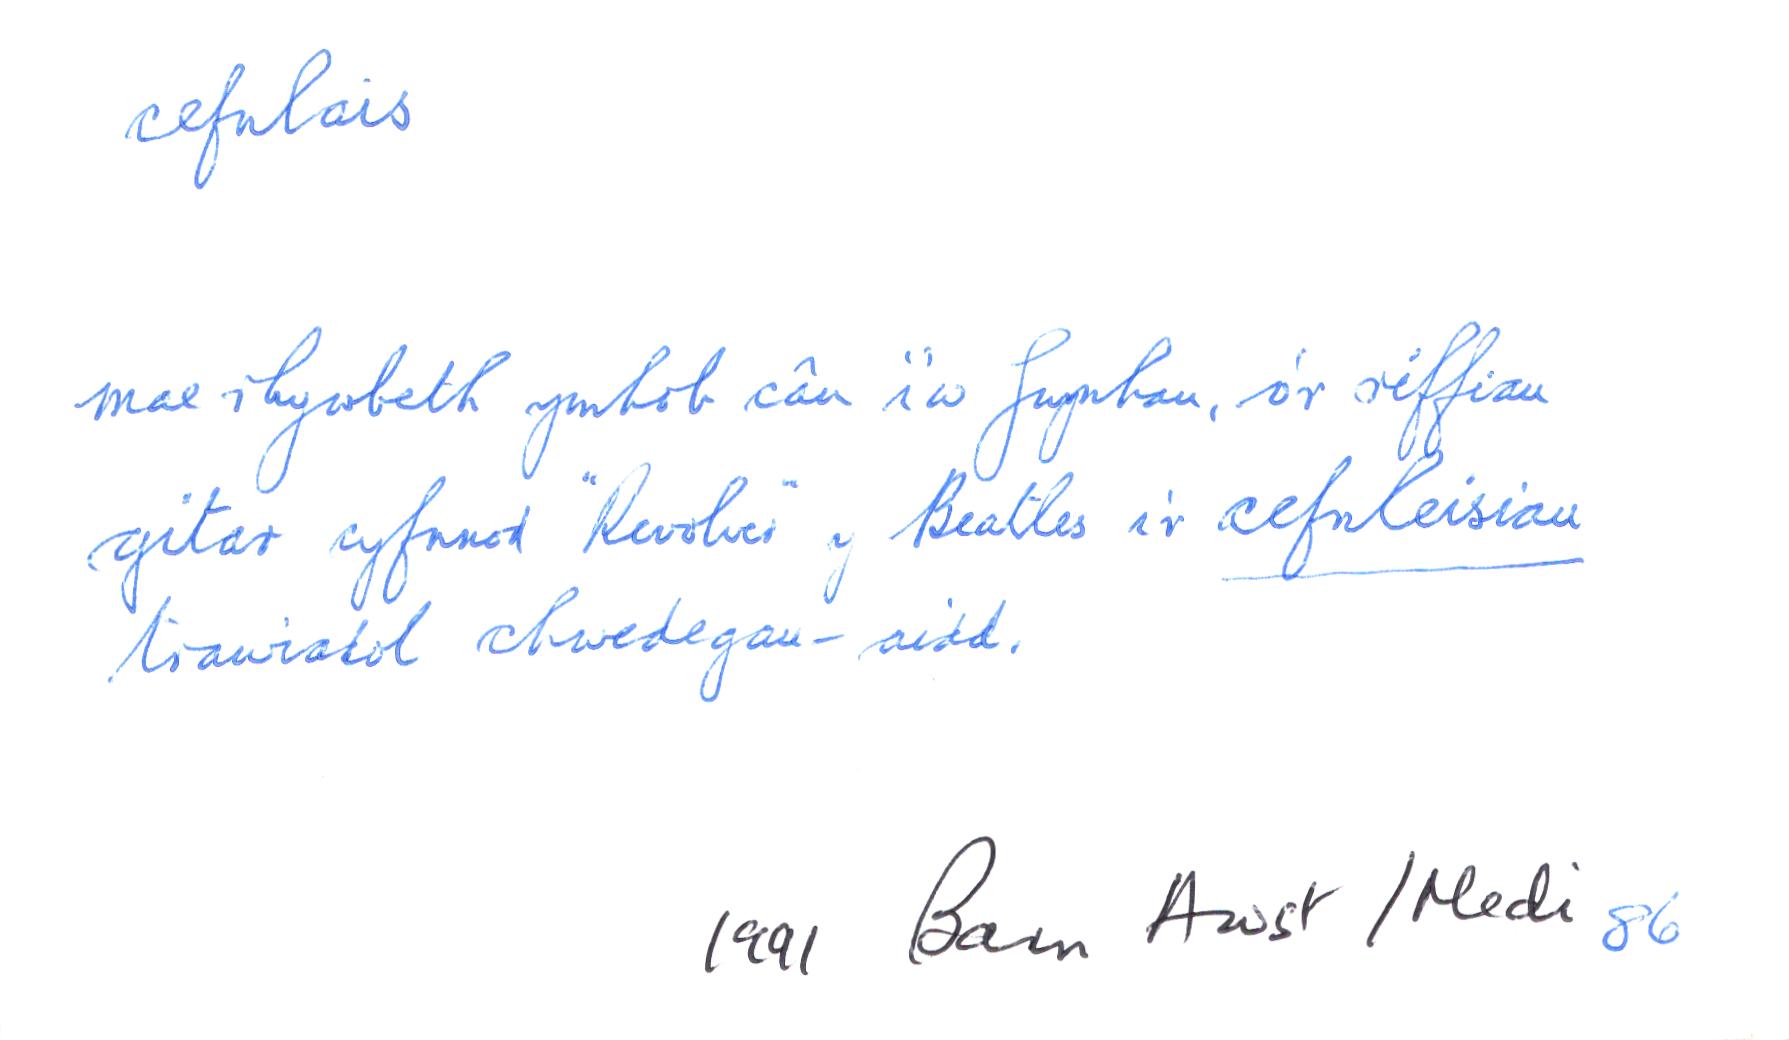 cefnlais
mae rhywbeth ymhob cân i'w fwynhau, o'r riffiau
gitar cyfnod "Revolver" y Beatles i'r cefnleisiau
trawiadol chwedegau-aidd.
1991 Barn Awst / Medi 86